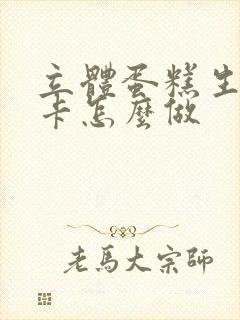 立體蛋糕生
卡怎麼做
老馬大宗師